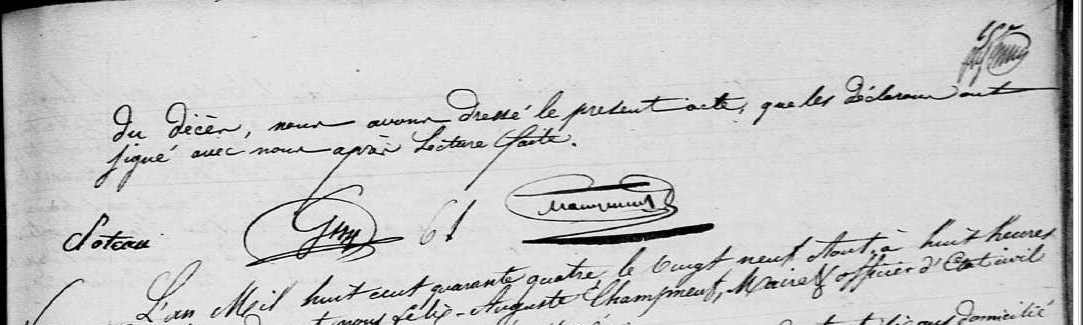 du décès, nous avons dressé le present acte, que les déclarans ont
signé avec nous après Lecture faite.
L'an Mil huit cent quarante quatre le vingt neuf Aout, à huit heures
nous félix-Auguste Champneuf, Maire & officier d'Etat civil
domicilié